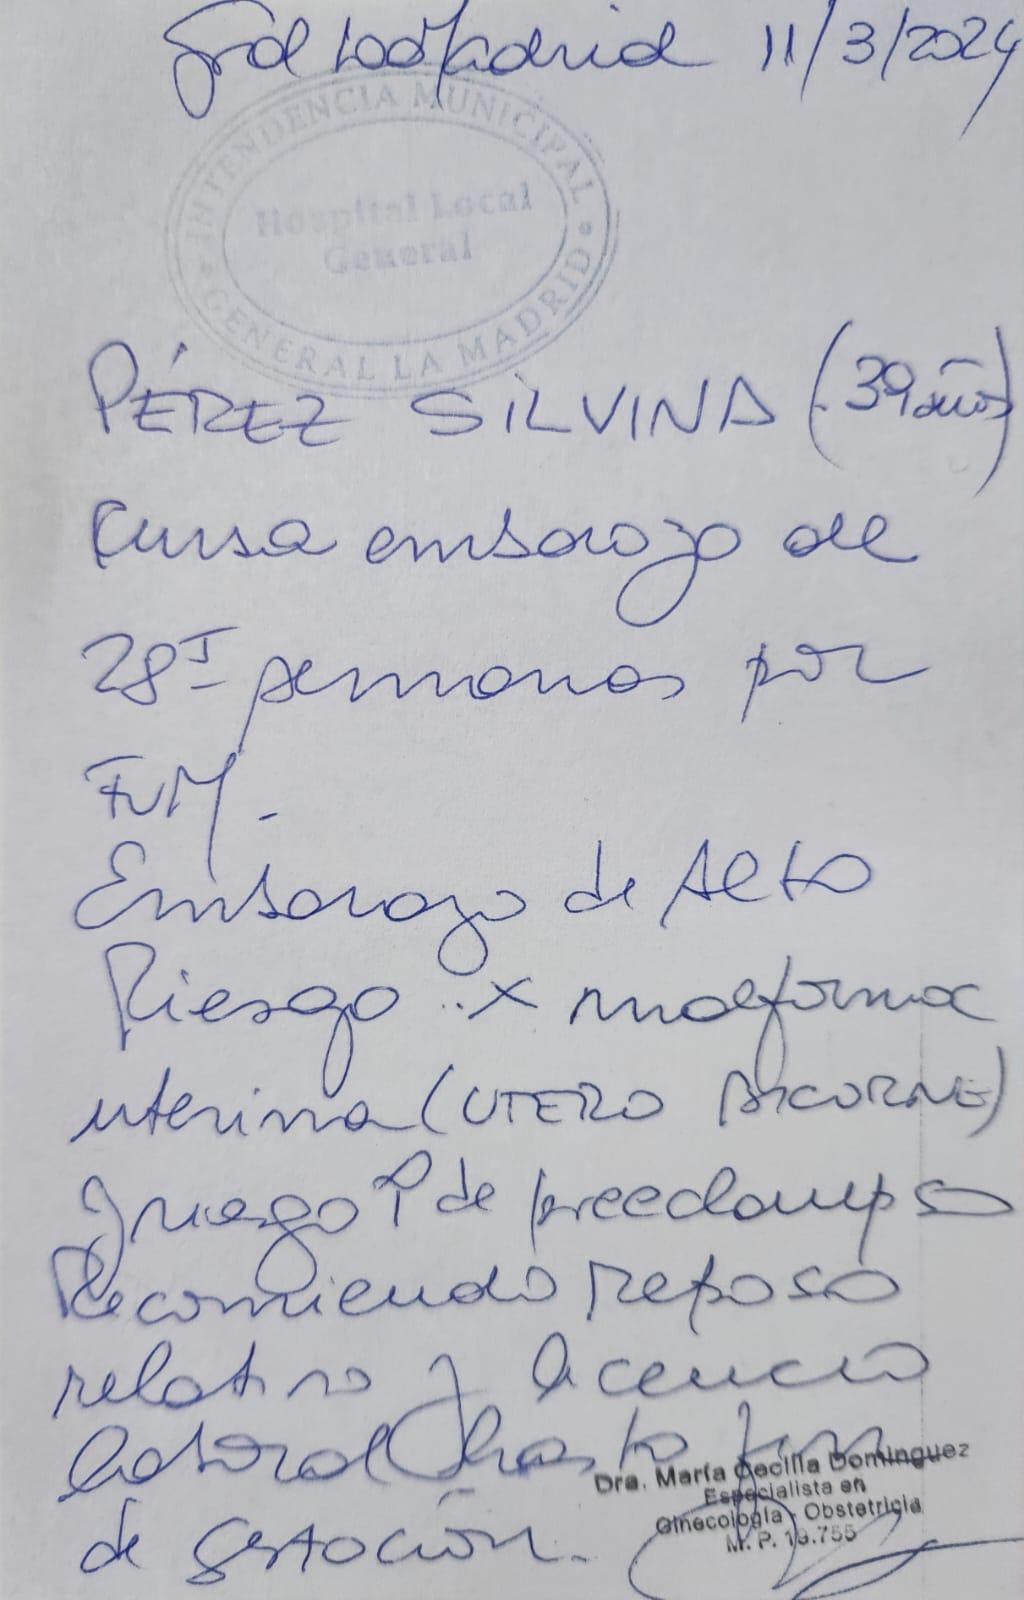 Gral La Madrid 11/3/2024
INTENDENCIA MUNICIPAL
Hospital Local
General
GENERAL LA MADRID
PÉREZ SILVINA (39 años)
Cursa embarazo de
28 semanas por
FUM.-
Embarazo de Alto
Riesgo x malformac
uterina (UTERO BICORNE)
y riesgo ↑ de preeclampsia
Recomiendo reposo
relativo y licencia
laboral hasta fin
de gestación.
Dra. María Cecilia Dominguez
Especialista en
Ginecología - Obstetricia
M. P. 19.755